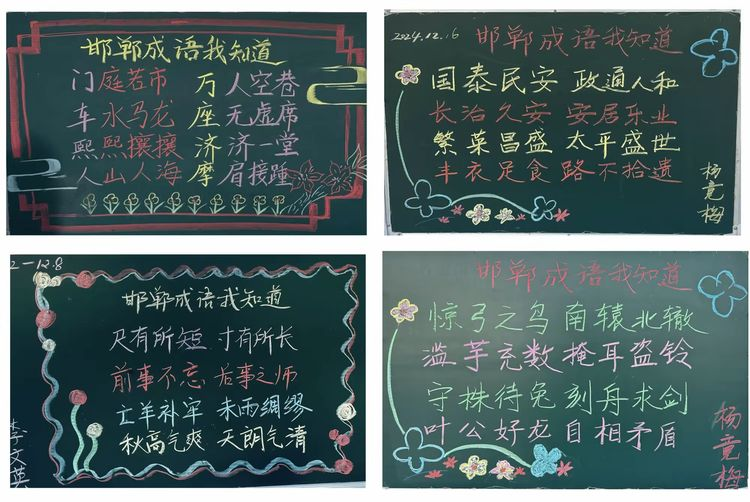 邯郸成语我知道
门庭若市 万人空巷
车水马龙 座无虚席
熙熙攘攘 济济一堂
人山人海 摩肩接踵
2024.12.16
邯郸成语我知道
国泰民安 政通人和
长治久安 安居乐业
繁荣昌盛 太平盛世
丰衣足食 路不拾遗
杨竞梅
2-12.8
邯郸成语我知道
尺有所短 寸有所长
前事不忘 后事之师
亡羊补牢 未雨绸缪
秋高气爽 天朗气清
李文英
邯郸成语我知道
惊弓之鸟 南辕北辙
滥芋充数 掩耳盗铃
守株待兔 刻舟求剑
叶公好龙 自相矛盾
杨竞梅